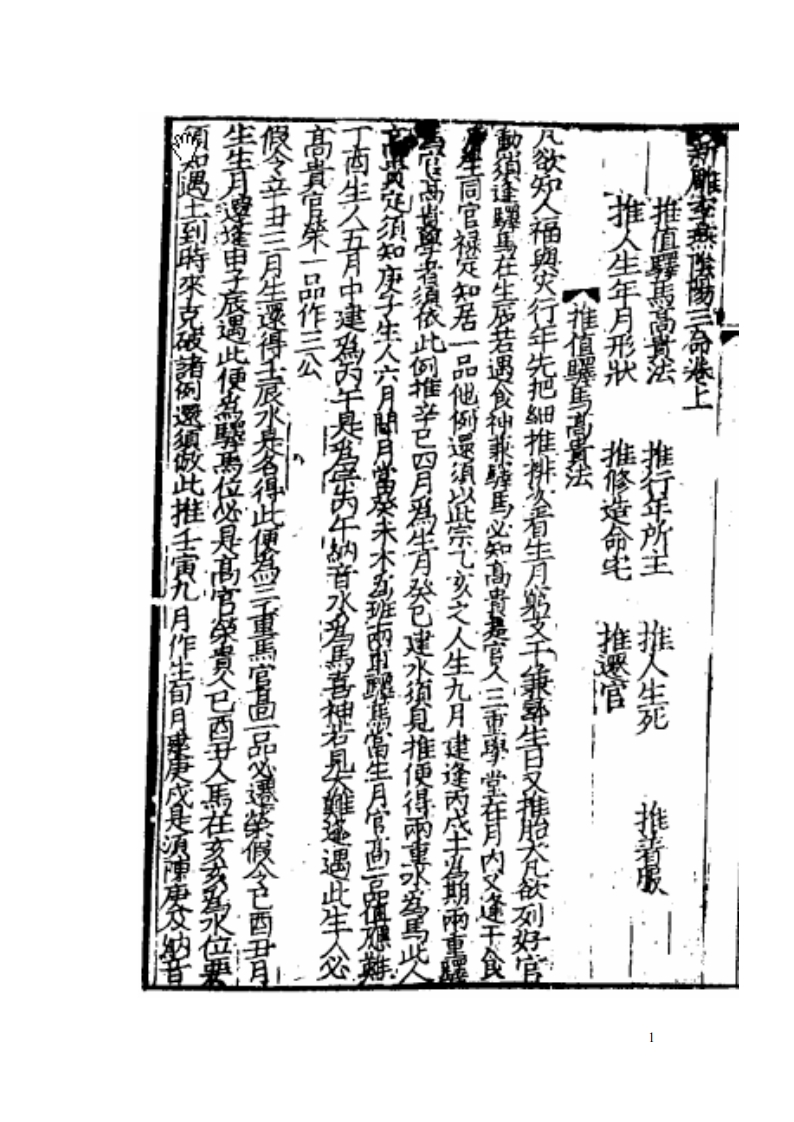 新雕李燕陰陽三命卷上
推值驛馬高貴法 推行年所主 推人生死 推着服
推人生年月形狀 推修造命宅 推遷官
推值驛馬高貴法
凡欲知人福與災行年先把細推排次看生月窮支干兼尋生日又推胎大凡欲列好官
動須逢驛馬在生辰若遇食神兼驛馬必知高貴是官人三重學堂在月內又逢干食
生同官祿定知居一品他例還須以此宗乙亥之人生九月建逢丙戌土為期兩重驛
馬官高貴學者須依此例推辛巳四月為生月癸巳建水須見推便得兩重水為馬此人
高貴定須知庚子生人六月間月當癸未木為班兩重驛馬當生月官高一品值應難
丁酉生人五月中建為丙午是為宗丙午納音水為馬喜神若見大難逢遇此生人必
高貴官榮一品作三公
假令辛丑三月生還得壬辰水是名得此便為三重馬官高一品必遷榮假令己酉丑月
生生月還逢申子辰遇此便為驛馬位必是高官榮貴人己酉丑人馬在亥亥為水位要
須知遇土到時來克破諸例還須倣此推壬寅九月作生旬月建庚戌是須陳庚戌納音
1